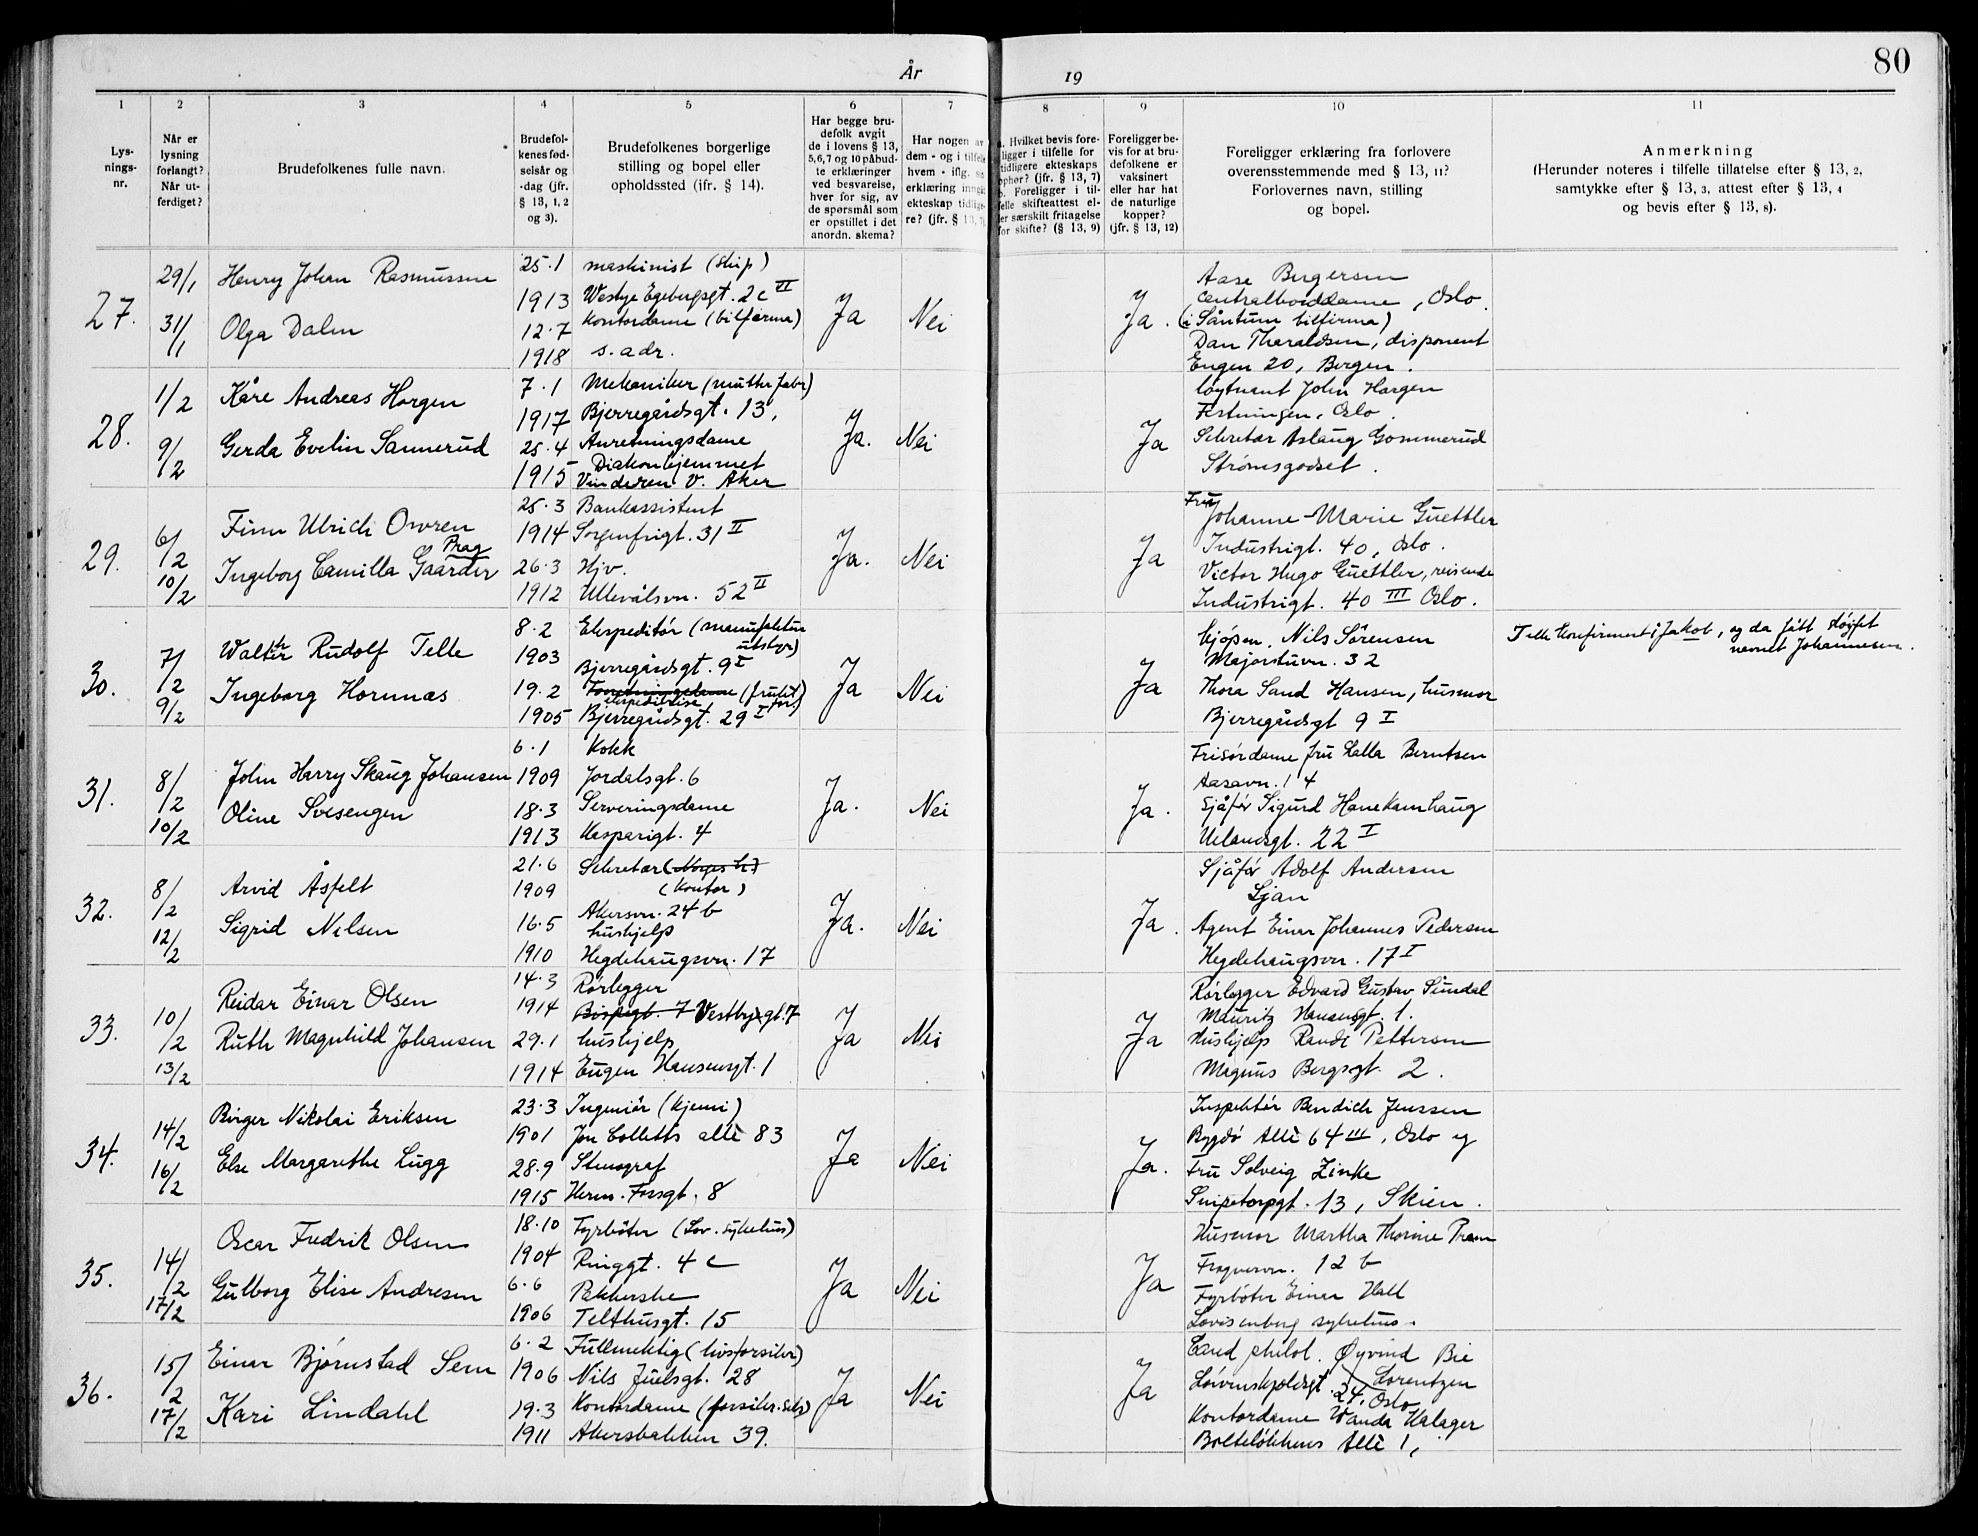 80
År 19
1 2 3 4 5 6 7 8 9 10 11
Lys-
nings-
nr.
Når er
lysning
forlangt?
Når ut-
ferdiget?
Brudefolkenes fulle navn.
Brudefol-
kenes fød-
selsår og
-dag (jfr.
§ 13, 1, 2
og 3).
Brudefolkenes borgerlige
stilling og bopel eller
opholdssted (jfr. § 14).
Har begge bru-
defolk avgit
de i lovens § 13,
5,6,7 og 10 påbud-
te erklæringer
ved besvarelse,
hver for sig, av
de spørsmål som
er opstillet i det
anordn. skema?
Har nogen av
dem - og i tilfelle
hvem - iflg.
erklæring inngått
ekteskap tidlige-
re? (jfr. § 13,
a. Hvilket bevis fore-
ligger i tilfelle for
tidligere ekteskaps
ophør? (jfr. § 13, 7)
b. Foreligger i til-
felle skifteattest el-
ler særskilt fritagelse
for skifte? (§ 13, 9)
Foreligger be-
vis for at bru-
defolkene er
vaksinert
eller har hat
de naturlige
kopper?
(jfr. § 13, 12)
Foreligger erklæring fra forlovere
overensstemmende med § 13, 11?
Forlovernes navn, stilling
og bopel.
Anmerkning
(Herunder noteres i tilfelle tillatelse efter § 13, 2,
samtykke efter § 13, 3, attest efter § 13, 4
og bevis efter § 13, 8).
27.
29/1
31/1
Henry Johan Rasmussen
Olga Dalen
25.1
1913
12.7
1918
maskinist (skip)
Westye Egebergsgt. 2c VI
Kontordame (bilfirma)
s. adr.
Ja
Nei
Ja.
Aase Bergersen
centralborddame, Oslo.
(i Såntum bilfirma)
Dan Tharaldsen, disponent
Engen 20, Bergen.
28.
1/2
9/2
Kåre Andreas Horgen
Gerda Evelin Sannerud
7.1
1917
25.4
1915
Mekaniker (mutter fabr)
Bjerregårdsgt. 13,
Anretningsdame
Diakonhjemmet
Vinderen V. Aker
Ja.
Nei
Ja
løytnant John Horgen
Festningen, Oslo.
Sekretær Aslaug Gommerud
Strømsgodset.
29.
6/2
10/2
Finn Ulrich Owren
Prag
Ingeborg Camilla Gaarder
25.3
1914
26.3
1912
Bankassistent
Sorgenfrigt. 31 II
Hjv.
Ullevålsvn. 52 II
Ja.
Nei
Ja
Fru
Johanne-Marie Guettler
Industrigt. 40, Oslo.
Victor Hugo Guettler, reisende
Industrigt. 40 III Oslo.
30.
7/2
9/2
Walter Rudolf Telle
Ingeborg Hornnæs
8.2
1903
19.2
1905
Ekspeditør (manufaktur
utstyr)
Bjerregårdsgt. 9 I
Forretningsdame (frukt
ekspeditrise forr)
Bjerregårdsgt. 29 I
Ja
Nei
Ja
Nils Sørensen
Majorstuvn. 32
Thora Sand Hansen, husmor
Bjerregårdsgt 9 I
Telle konfirmert i Jakob, og da fått tøyfet
nevnet Johannesen.
31.
8/2
10/2
John Harry Skaug Johansen
Oline Svesengen
6.1
1909
18.3
1913
Kokk
Jordalsgt. 6
Serveringsdame
Kasparigt. 4
Ja.
Nei
Ja.
Frisørdame fru Lalla Berntsen
Aasavn. 14
Sjåfør Sigurd Hanekamhaug
Uelandsgt. 22 I
32.
8/2
12/2
Arvid Åsfelt
Sigrid Nilsen
21.6
1909
16.5
1910
Sekretær (Norges )
(kontor)
Akersvn. 24 b
hushjelp
Hegdehaugsvn. 17
Ja.
Nei
Ja.
Sjåfør Adolf Andersen
Ljan
Agent Einar Johannes Pedersen
Hegdehaugsvn. 17 I
33.
10/2
13/2
Reidar Einar Olsen
Ruth Magnhild Johansen
14.3
1914
29.1
1914
Rørlegger
Bispegt. 7 Vestbygt. 7
hushjelp
Eugen Hansensgt. 1
Ja
Nei
Ja
Rørlegger Edvard Gustav Sundal
Mauritz Hansensgt. 1.
Hushjelp Randi Pettersen
Magnus Bergsgt. 2.
34.
14/2
16/2
Birger Nikolai Eriksen
Else Margarethe Lugg
23.3
1901
28.9
1915
Ingeniør (kjemi)
Jon Colletts alle 83
Stenograf
Herm. Fossgt. 8
Ja
Nei
Ja.
Inspektør Bendich Jenssen
Bygdø Alle 64 III, Oslo og
Fru Solveig Zinke
Snipetorpgt. 13, Skien.
35.
14/2
17/2
Oscar Fredrik Olsen
Gulborg Elise Andresen
18.10
1904
6.6
1906
Fyrbøter (Lov. sykehus)
Ringgt. 4 c
Pakkerske
Telthusgt. 15
Ja
Nei
Ja
Husmor Martha Thorine Pram
Frognervn. 12 b
Fyrbøter Einar Hall
Lovisenberg sykehus.
36.
15/2
17/2
Einar Bjørnstad Sem
Kari Lindahl
6.2
1906
19.3
1911
Fullmektig (livsforsikr)
Nils Juelsgt. 28
Kontordame (forsikr.selsk)
Akersbakken 39.
Ja
Nei
Ja
Cand philol. Øyvind Bie
Lorentzen
Løvenskjoldsgt. 24, Oslo
Kontordame Wanda Halager
Bolteløkkens Alle 1,